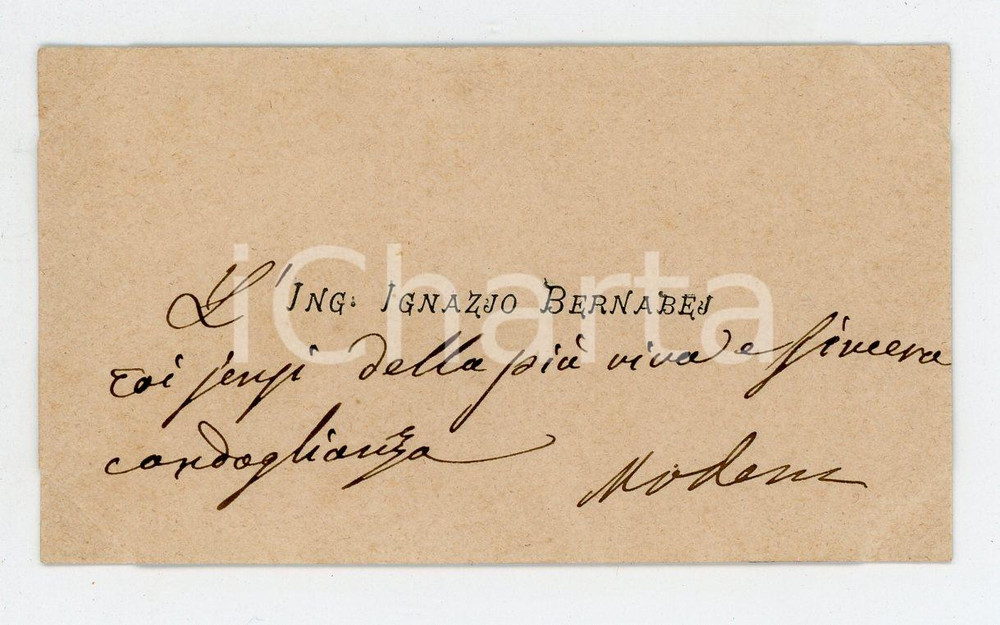 L' ING: IGNAZIO BERNABEJ
coi sensi della più viva e sincera
condoglianza
Modena
iCharta